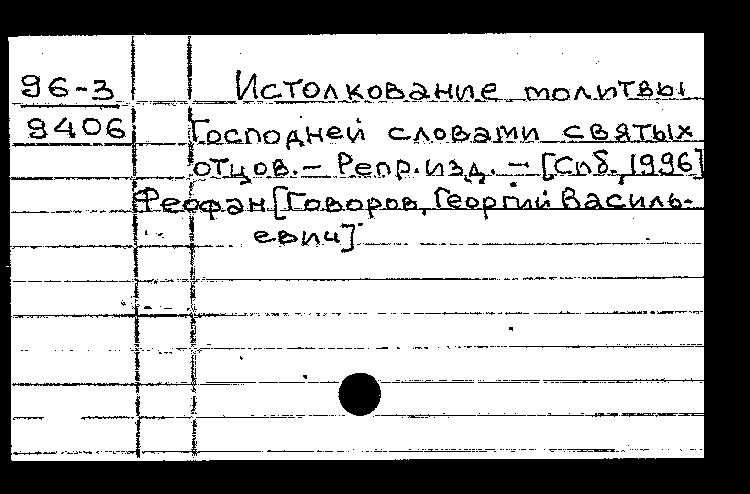 96-3 Истолкование молитвы
9406 Господней словами святых
отцов. – Репр. изд. – [Спб., 1996]
Феофан [Говоров, Георгий Василь-
евич]